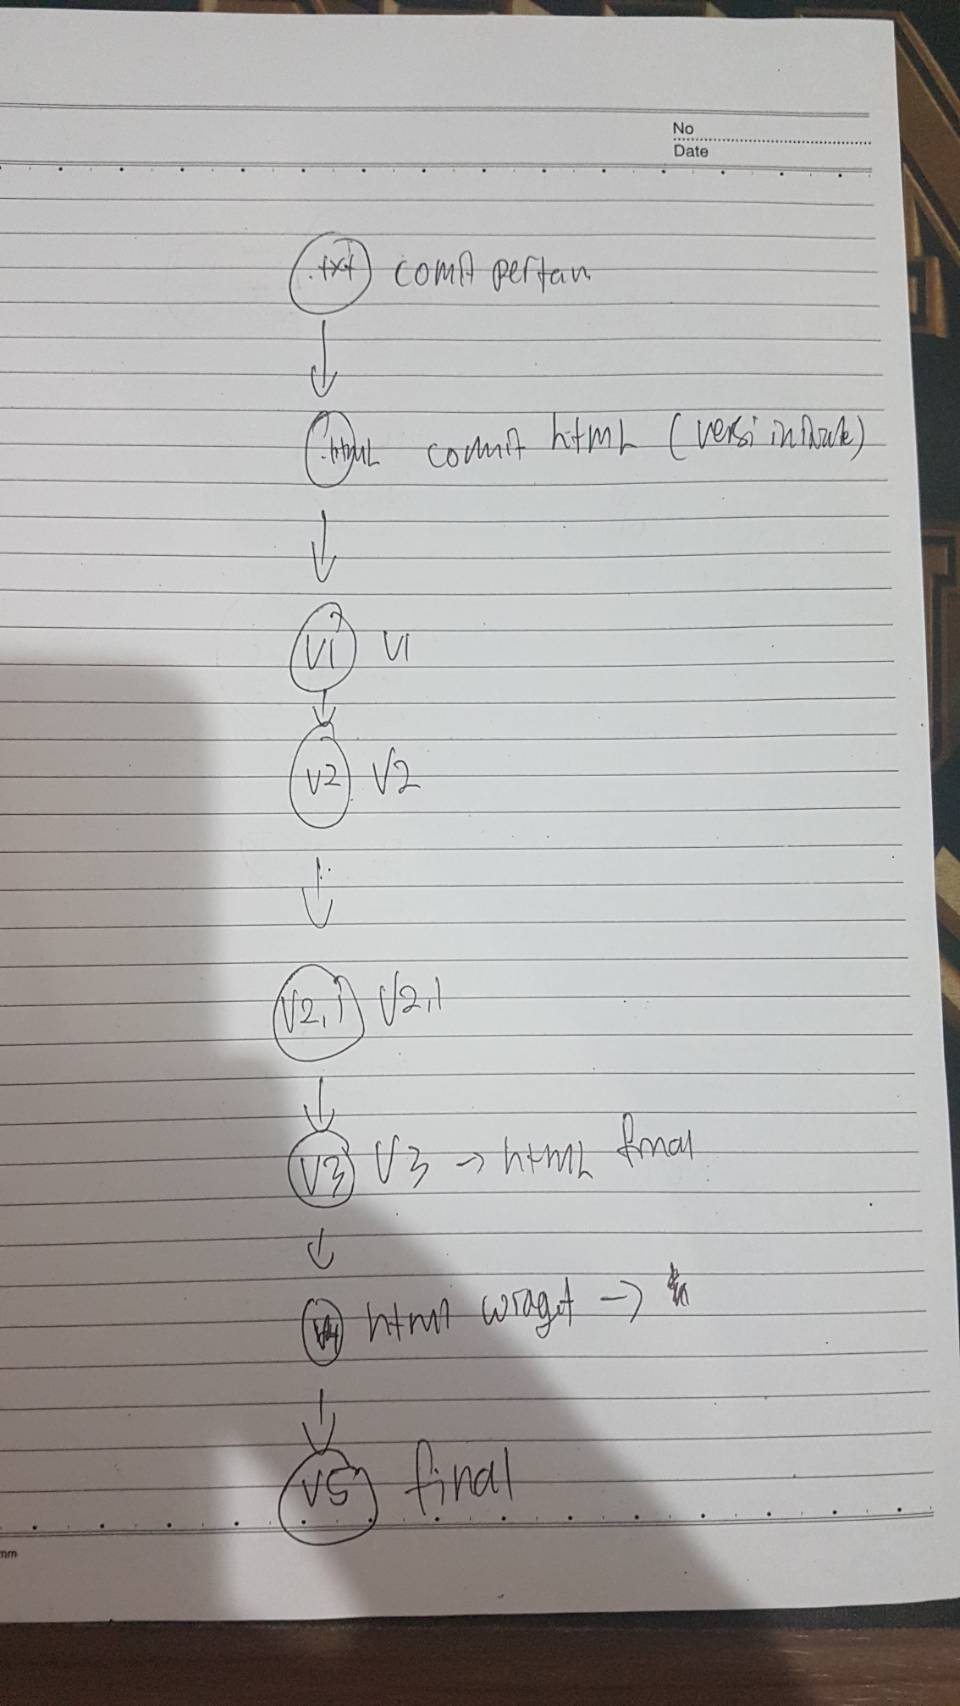 No
Date
.txt commit pertam
.html commit html (versi induk)
V1 V1
V2 V2
V2,1 V2,1
V3 V3 → html final
V4 html →
V5 final
mm